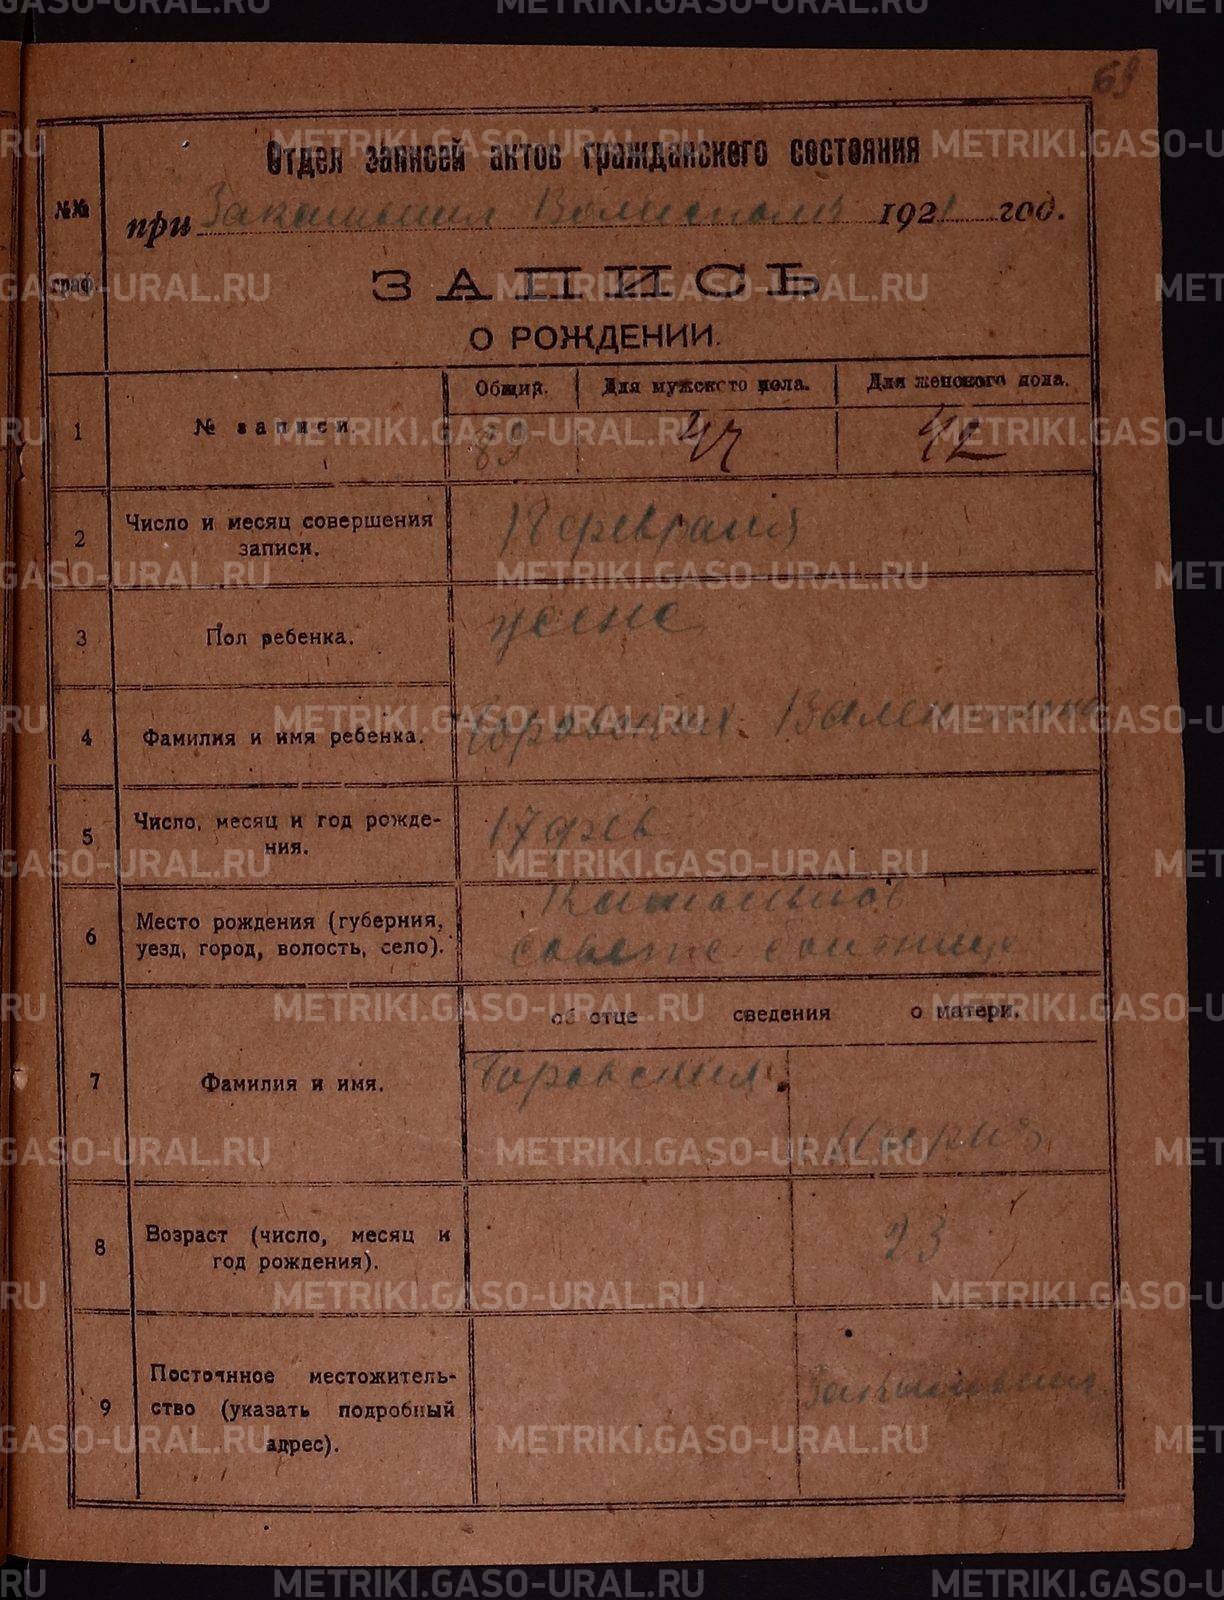 69
Отдел записей актов гражданского состояния
при Волисполк 1921 год.
№№
граф.
ЗАПИСЬ
О РОЖДЕНИИ.
Общий. Для мужского пола. Для женского пола.
1 № записи. 89 47 42
2 Число и месяц совершения
записи. 18 февраля
3 Пол ребенка. женс
4 Фамилия и имя ребенка. Боровских Валентина
5 Число, месяц и год рожде-
ния. 17 фев
6 Место рождения (губерния,
уезд, город, волость, село).
об отце сведения о матери.
7 Фамилия и имя. Боровских
Мария
8 Возраст (число, месяц и
год рождения). 23
9 Постоянное местожитель-
ство (указать подробный
адрес).
METRIKI.GASO-URAL.RU